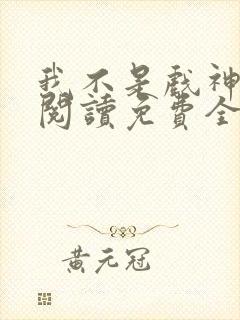 我不是戲神
閱讀免費全
黃元冠